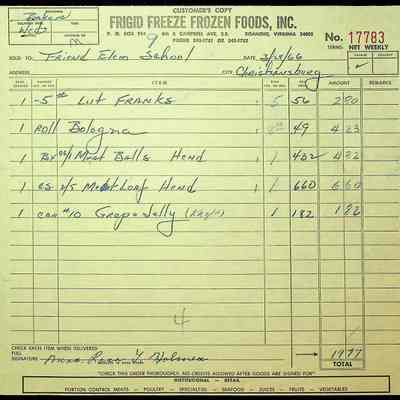 CUSTOMER'S COPY
FRIGID FREEZE FROZEN FOODS, INC.
ROANOKE, VIRGINIA
No. 17783
TERMS: NET WEEKLY
Wed
SOLD TO Friend Elem School
66
ADDRESS CITY Christiansburg
ITEM AMOUNT REMARKS
1 -5# Lut FRANKS 5 56 280
1 Roll Bologna 49 423
1 Meat Balls Hend 1 432 432
1 cs 2/5 Meat Loaf Hend 1 660 660
1 can #10 Grape Jelly 1 182 182
4
CHECK EACH ITEM WHEN DELIVERED
FULL SIGNATURE Mrs. Holmes
1977
TOTAL
"CHECK THIS ORDER THOROUGHLY. NO CREDITS ALLOWED AFTER GOODS ARE SIGNED FOR"
INSTITUTIONAL - RETAIL
PORTION CONTROL MEATS - POULTRY - SPECIALTIES - SEAFOOD - JUICES - FRUITS - VEGETABLES